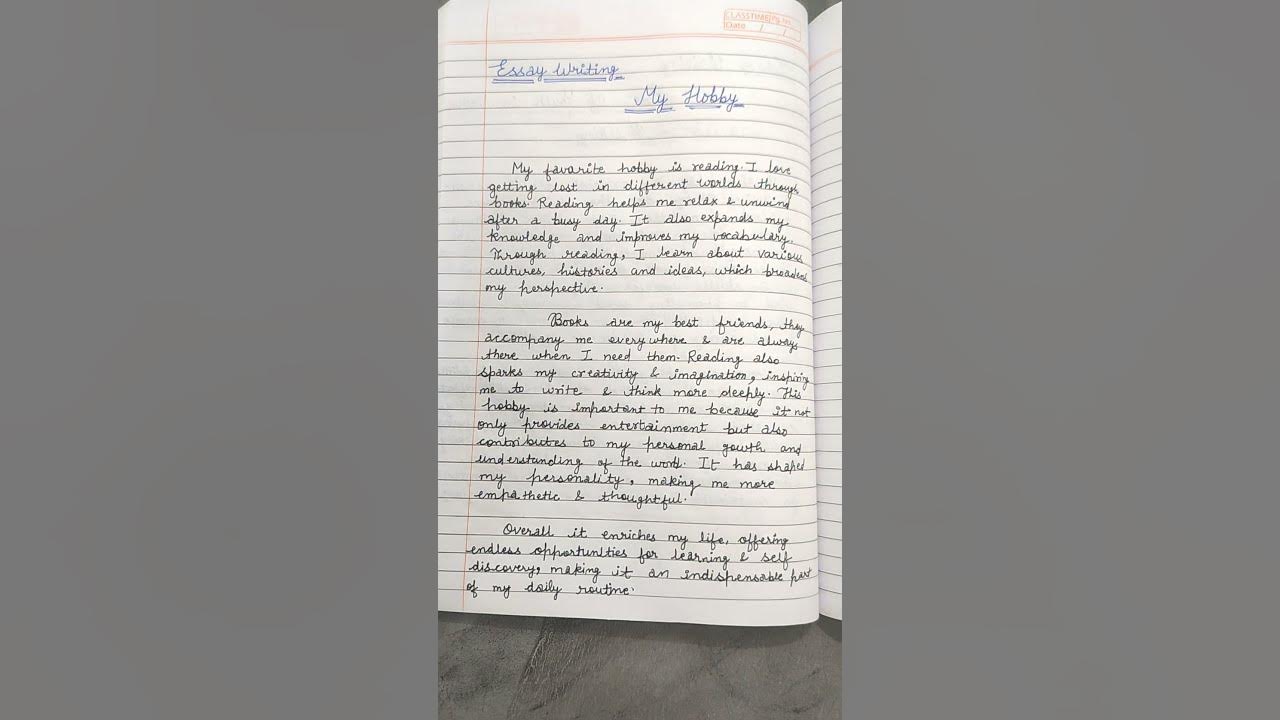 CLASSTIME Pg. No.
Date / /
Essay Writing
My Hobby
My favarite hobby is reading. I love
getting lost in different worlds through
books. Reading helps me relax & unwind
after a busy day. It also expands my
knowledge and improves my vocabulary.
Through reading, I learn about various
cultures, histories and ideas, which broadens
my perspective.
Books are my best friends, they
accompany me everywhere & are always
there when I need them. Reading also
sparks my creativity & imagination, inspiring
me to write & think more deeply. This
hobby is important to me because it not
only provides entertainment but also
contributes to my personal gowth and
understanding of the world. It has shaped
my personality, making me more
empathetic & thoughtful.
Overall it enriches my life, offering
endless opportunities for learning & self
discovery, making it an indispensable part
of my daily routine.